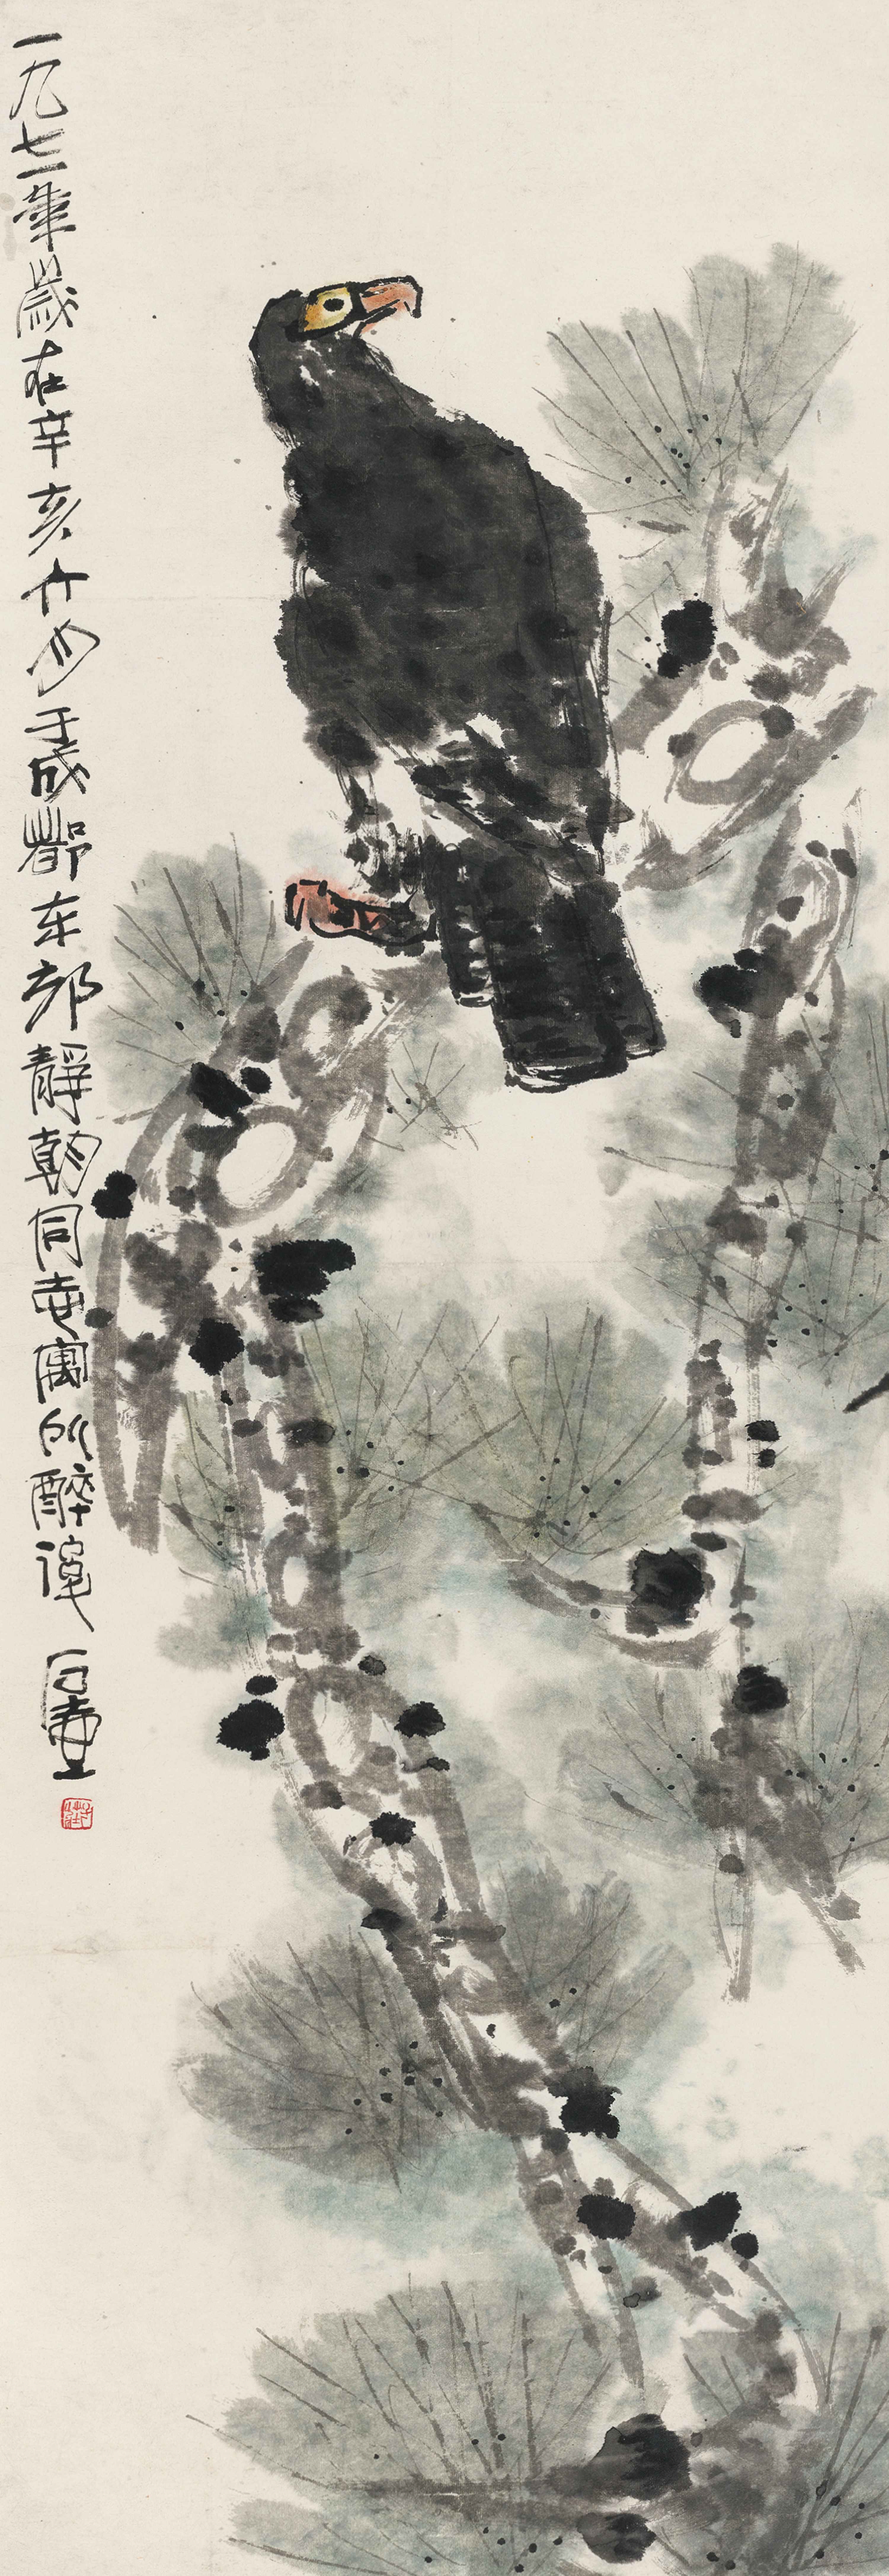 一九七一年歲在辛亥六月于成都东郊靜朝同志寓所醉後 石壺